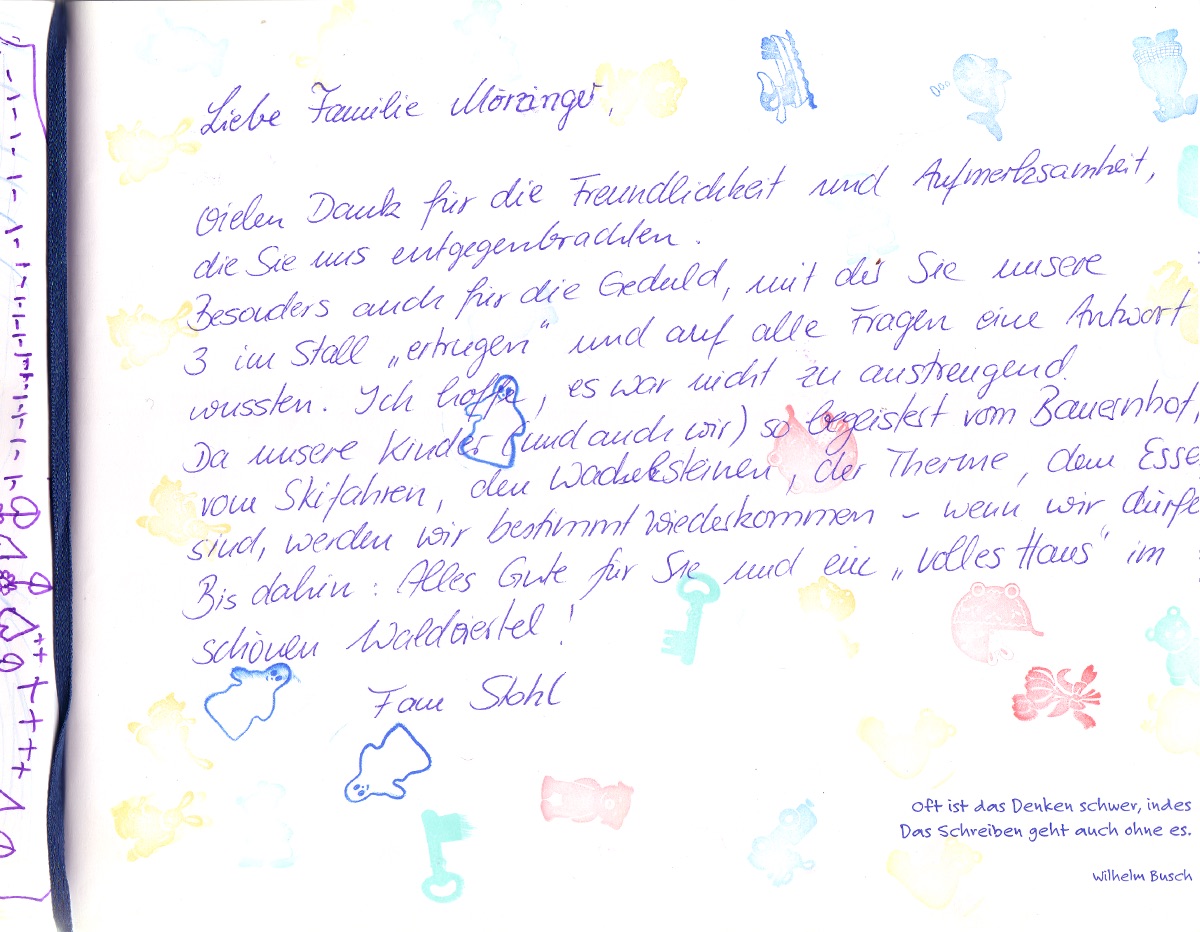 Liebe Familie Mörzinger,
Vielen Dank für die Freundlichkeit und Aufmerksamkeit,
die Sie uns entgegenbrachten.
Besonders auch für die Geduld, mit der Sie unsere
3 im Stall „ertrugen" und auf alle Fragen eine Antwort
wussten. Ich hoffe, es war nicht zu anstrengend.
Da unsere Kinder (und auch wir) so begeistert vom Bauernhof,
vom Skifahren, den Wackelsteinen, der Therme, dem Esse
sind, werden wir bestimmt wiederkommen – wenn wir dürfe
Bis dahin: Alles Gute für Sie und ein „volles Haus" im
schönen Waldviertel!
Fam Stohl
Oft ist das Denken schwer, indes
Das Schreiben geht auch ohne es.
Wilhelm Busch